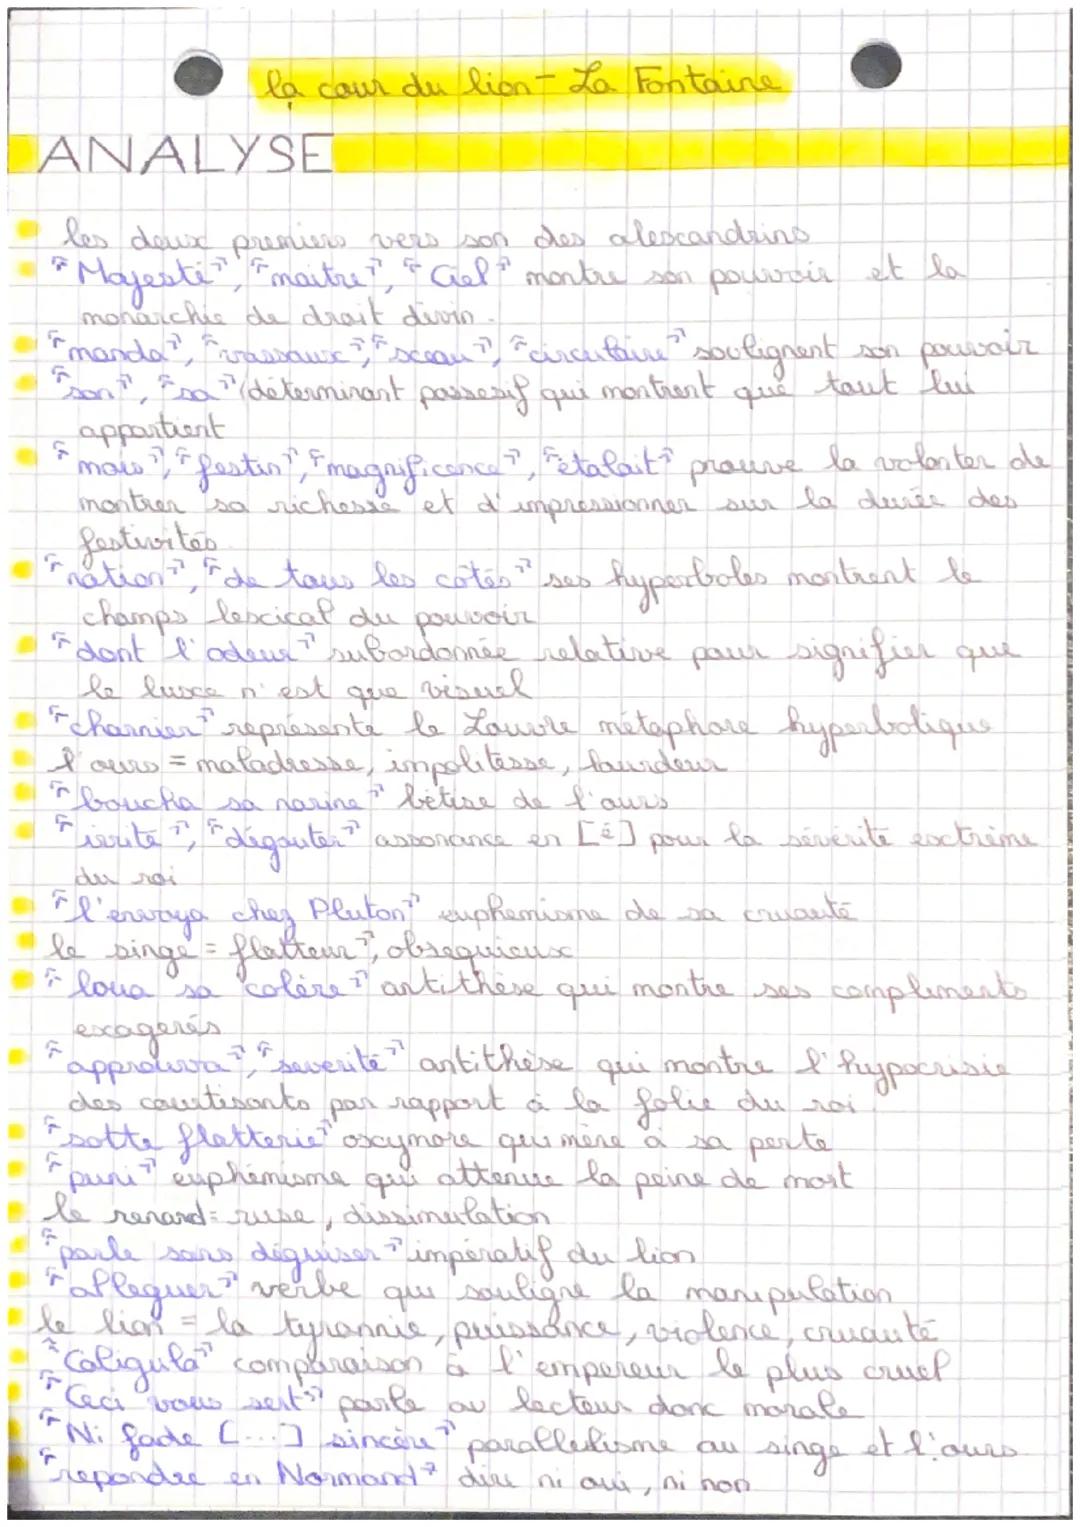 la cour du lion - La Fontaine
ANALYSE
les deux premiers vers son des alexandrins
"Majesté", "maitre", "Ciel" montre son pouvoir et la
monarchie de droit divin.
"manda", "vassaux", "sceau", "circulaire" soulignent son pouvoir
"son", "sa" (déterminant possesif qui montrent que tout lui
appartient
"mois", "festin", "magnificence", "étalait" prouve la volonter de
montrer sa richesse et d'impressionner sur la durée des
festivités
"nation", "de tous les côtés" ses hyperboles montrent le
champs lexical du pouvoir
"dont l'odeur" subordonnée relative pour signifier que
le luxe n'est que visuel
"charnier" représente le Louvre métaphore hyperbolique
l'ours = maladresse, impolitesse, lourdeur
"boucha sa narine" bêtise de l'ours
"irrité", "dégouter" assonance en [é] pour la sévérité extrême
du roi
"l'envoya chez Pluton" euphémisme de sa cruauté
le singe = flatteur", obsequieux
"loua sa colère" antithèse qui montre ses compliments
exagerés
"approuva", "severité" antithèse qui montre l'hypocrisie
des courtisants par rapport à la folie du roi
"sotte flatterie" oxymore qui mène à sa perte
"puni" euphémisme qui attenue la peine de mort
le renard = ruse, dissimulation
"parle sans déguiser" impératif du lion
"alleguer" verbe qui souligne la manipulation
le lion = la tyrannie, puissance, violence, cruauté
"Caligula" comparaison à l'empereur le plus cruel
"Ceci vous sert" parle au lecteur donc morale
"Ni fade [...] sincère" parallélisme au singe et l'ours
"repondre en Normand" dire ni oui, ni non